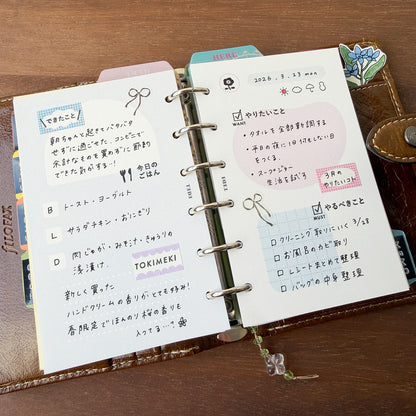 できたこと
朝ちゃんと起きてバタバタ
せずに過ごせた。コンビニで
余計なものを買わずに節約
できた気がする…!
今日の
ごはん
B トースト・ヨーグルト
L サラダチキン・おにぎり
D 肉じゃが・みそ汁・きゅうりの
浅漬け
TOKIMEKI
新しく買った
ハンドクリームの香りがとても好み!
春限定でほんのり桜の香りも
入ってる…。
filofax
2026. 3. 23 mon
WANT
やりたいこと
・タオルを全部新調する
・平日の夜に1日何もしない日
をつくる
・スープジャー
生活を試す
3月の
やりたいコト
MUST
やるべきこと
クリーニング取りにいく 3/28
お風呂のカビ取り
レシートまとめて整理
バッグの中身整理